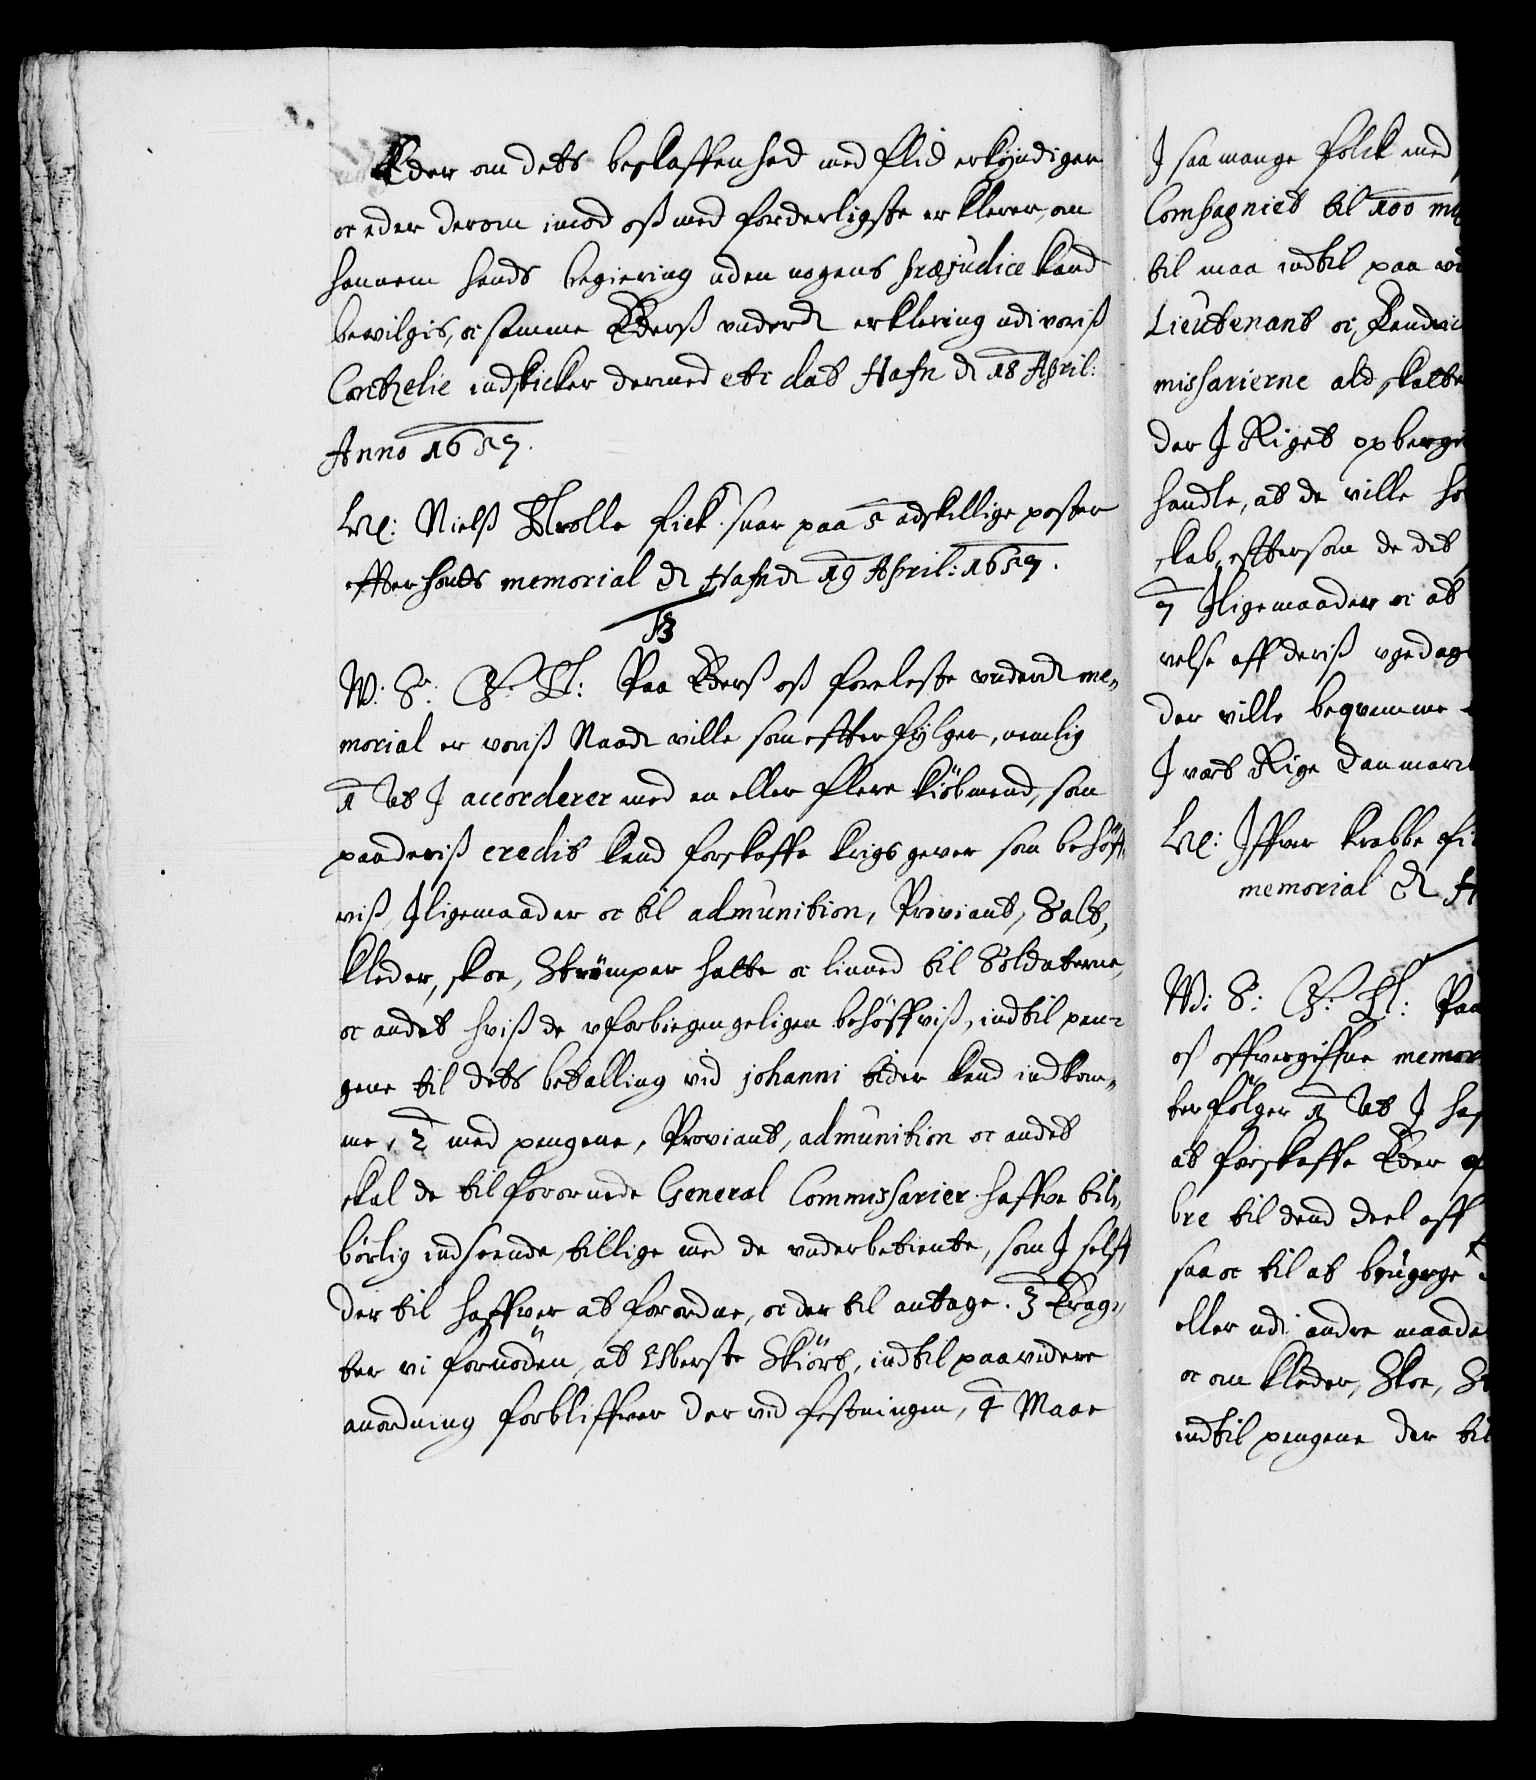 Eder om dets beskaffenhed med flid erkyndiger
oc eder derom imod oß med forderligste erklerer, om
hannem hands begiering uden nogens præjudice kand
bevilgis, oc samme Eders underd erklering udi voriß
Cantzelie indskicker dermed etc dat Hafn d 18 April:
Anno 1657.
Nielß Trolle fick suar paa 5 adskillige poster
effter hands memorial d Hafn d 19 April: 1657.
W: S: G: T: Paa Eders oß foreleste underd me„
morial er voriß Naad ville som effterfylger, nemlig
1 At I accorderer med en eller flere kiöbmend, som
paa deriß credit kand forskaffe krigs gever som behöff„
viß Iligemaader oc til admunition, Proviant, Salt,
kleder, skoe, Strömper hatte oc linned til Soldaterne,
oc andet hviß de uforbiegengeligen behöffviß, indtil pen„
gene til dets betalling vid johanni tider kand indkom„
me, 2 med pengene, Proviant, admunition oc andet
skal de tilforornede General Commissarier haffve til„
börlig indseende, tillige med de underbetiente, som I selff
der til haffver at forordne, oc der til antage. 3 Erag„
ter vi fornöden, at Oberste Skiört, indtil paa videre
anordning forbliffver der ved festningen, 4 Maae
I saa mange folck med
Compagniet til 100 m
til maa indtil paa
Lieutenant oc
missarierne ald skatte
der I Riget opberge
handle, at de ville
skab, effterson de det
7 Iligemaader oc at
velse aff deriß
der ville beqvemme
I vort Rige Danmarck
Iffver Krabbe fi
memorial d H
W: S: G: T: Paa
oß offvergiffne memor
terfölger 1 At I haf
at forskaffe Eder
bre til dend deel aff
saa oc til at
eller udi andre maade
oc om kleder, Skoe, St
indtil pengene der til